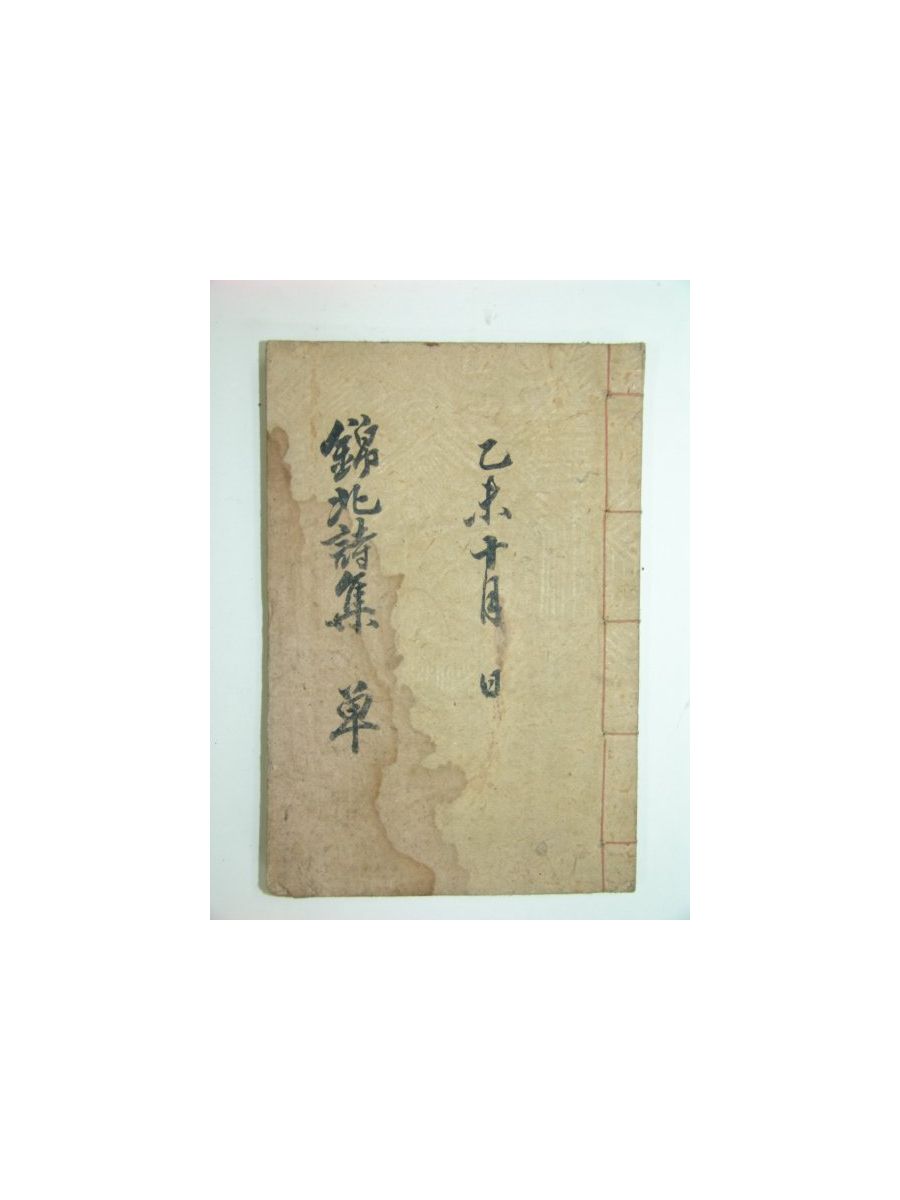 乙未十月 日
錦北詩集 単